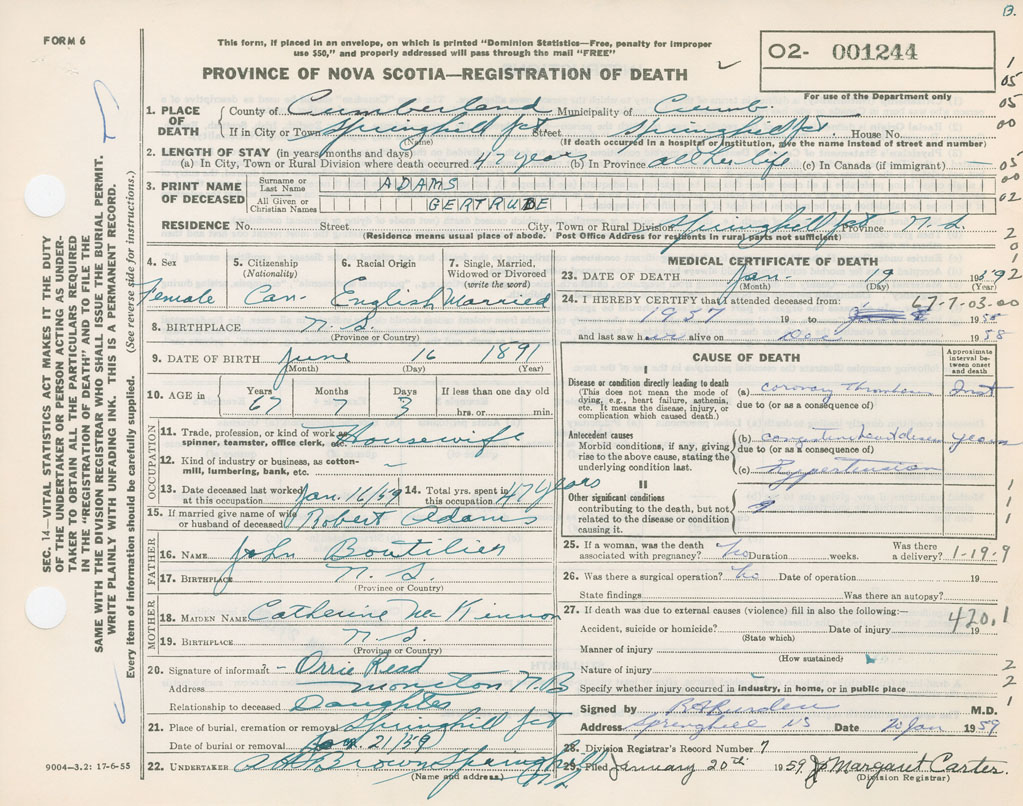 B.
FORM 6
This form, if placed in an envelope, on which is printed "Dominion Statistics—Free, penalty for improper
use $50," and properly addressed will pass through the mail "FREE"
O2- 001244
For use of the Department only
PROVINCE OF NOVA SCOTIA—REGISTRATION OF DEATH
SEC. 14—VITAL STATISTICS ACT MAKES IT THE DUTY
OF THE UNDERTAKER OR PERSON ACTING AS UNDER-
TAKER TO OBTAIN ALL THE PARTICULARS REQUIRED
IN THE "REGISTRATION OF DEATH" AND TO FILE THE
SAME WITH THE DIVISION REGISTRAR WHO SHALL ISSUE THE BURIAL PERMIT.
WRITE PLAINLY WITH UNFADING INK. THIS IS A PERMANENT RECORD.
Every item of information should be carefully supplied. (See reverse side for instructions.)
1. PLACE OF DEATH County of Cumberland Municipality of Cumb.
If in City or Town Springhill Jct Street Springhill Jct. House No.
(Name) (If death occurred in a hospital or institution, give the name instead of street and number)
2. LENGTH OF STAY (in years, months and days)
(a) In City, Town or Rural Division where death occurred 47 years (b) In Province all her life (c) In Canada (if immigrant)
3. PRINT NAME OF DECEASED Surname or Last Name ADAMS
All Given or Christian Names GERTRUDE
RESIDENCE No. Street City, Town or Rural Division Springhill Jct Province N.S.
(Residence means usual place of abode. Post Office Address for residents in rural parts not sufficient)
1
05
05
00
05
00
02
2
0
1
4. Sex 5. Citizenship (Nationality) 6. Racial Origin 7. Single, Married, Widowed or Divorced (write the word)
Female Can- English Married
8. BIRTHPLACE N.S.
(Province or Country)
9. DATE OF BIRTH June 16 1891
(Month) (Day) (Year)
10. AGE in Years 67 Months 7 Days 3 If less than one day old hrs. or min.
OCCUPATION
11. Trade, profession, or kind of work as spinner, teamster, office clerk, etc. Housewife
12. Kind of industry or business, as cotton-mill, lumbering, bank, etc. ~
13. Date deceased last worked at this occupation Jan. 16/59 14. Total yrs. spent in this occupation 47 years
15. If married give name of wife or husband of deceased Robert Adams
FATHER
16. NAME John Boutilier
17. BIRTHPLACE N.S.
(Province or Country)
MOTHER
18. MAIDEN NAME Catherine McKinnon
19. BIRTHPLACE N S.
(Province or Country)
20. Signature of informant - Orrie Read
Address Moncton N.B
Relationship to deceased Daughter
21. Place of burial, cremation or removal Springhill Jct
Date of burial or removal Jan. 21/59
22. UNDERTAKER Brown Springhill N.S.
(Name and address)
9004—3.2: 17-6-55
MEDICAL CERTIFICATE OF DEATH
23. DATE OF DEATH Jan- 19 195
(Month) (Day) (Year)
24. I HEREBY CERTIFY that I attended deceased from: 67-7-03-00
1957 19 to 1958
and last saw her alive on Dec 1958
CAUSE OF DEATH
Approximate interval between onset and death
I
Disease or condition directly leading to death
(This does not mean the mode of dying, e.g., heart failure, asthenia, etc. It means the disease, injury, or complication which caused death.)
(a) coronary Thrombosis Inst
due to (or as a consequence of)
Antecedent causes
Morbid conditions, if any, giving rise to the above cause, stating the underlying condition last.
(b) congestive heart disease years
due to (or as a consequence of)
(c) Hypertension
II
Other significant conditions
contributing to the death, but not related to the disease or condition causing it.
1
1
1
25. If a woman, was the death associated with pregnancy? No Duration weeks. Was there a delivery? 1-19-9
26. Was there a surgical operation? No Date of operation 19
State findings Was there an autopsy?
27. If death was due to external causes (violence) fill in also the following:— 420.1
Accident, suicide or homicide? Date of injury 19
(State which)
Manner of injury
(How sustained)
Nature of injury 2
Specify whether injury occurred in industry, in home, or in public place 2
Signed by Burden M.D. 1
Address Springhill NS Date 20 Jan 1959
28. Division Registrar's Record Number 7
29. Filed January 20th 1959 Margaret Carter.
(Division Registrar)